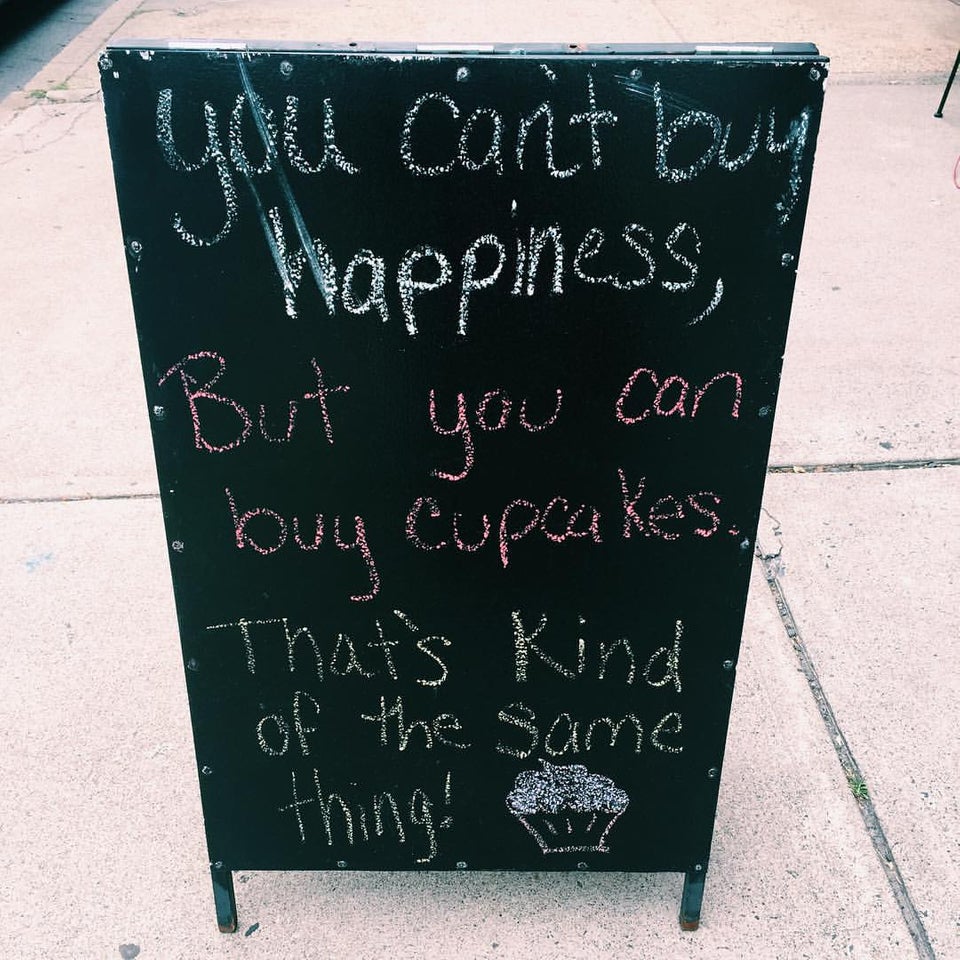 you can't buy
happiness,
But you can
buy cupcakes.
That's Kind
of the same
thing!